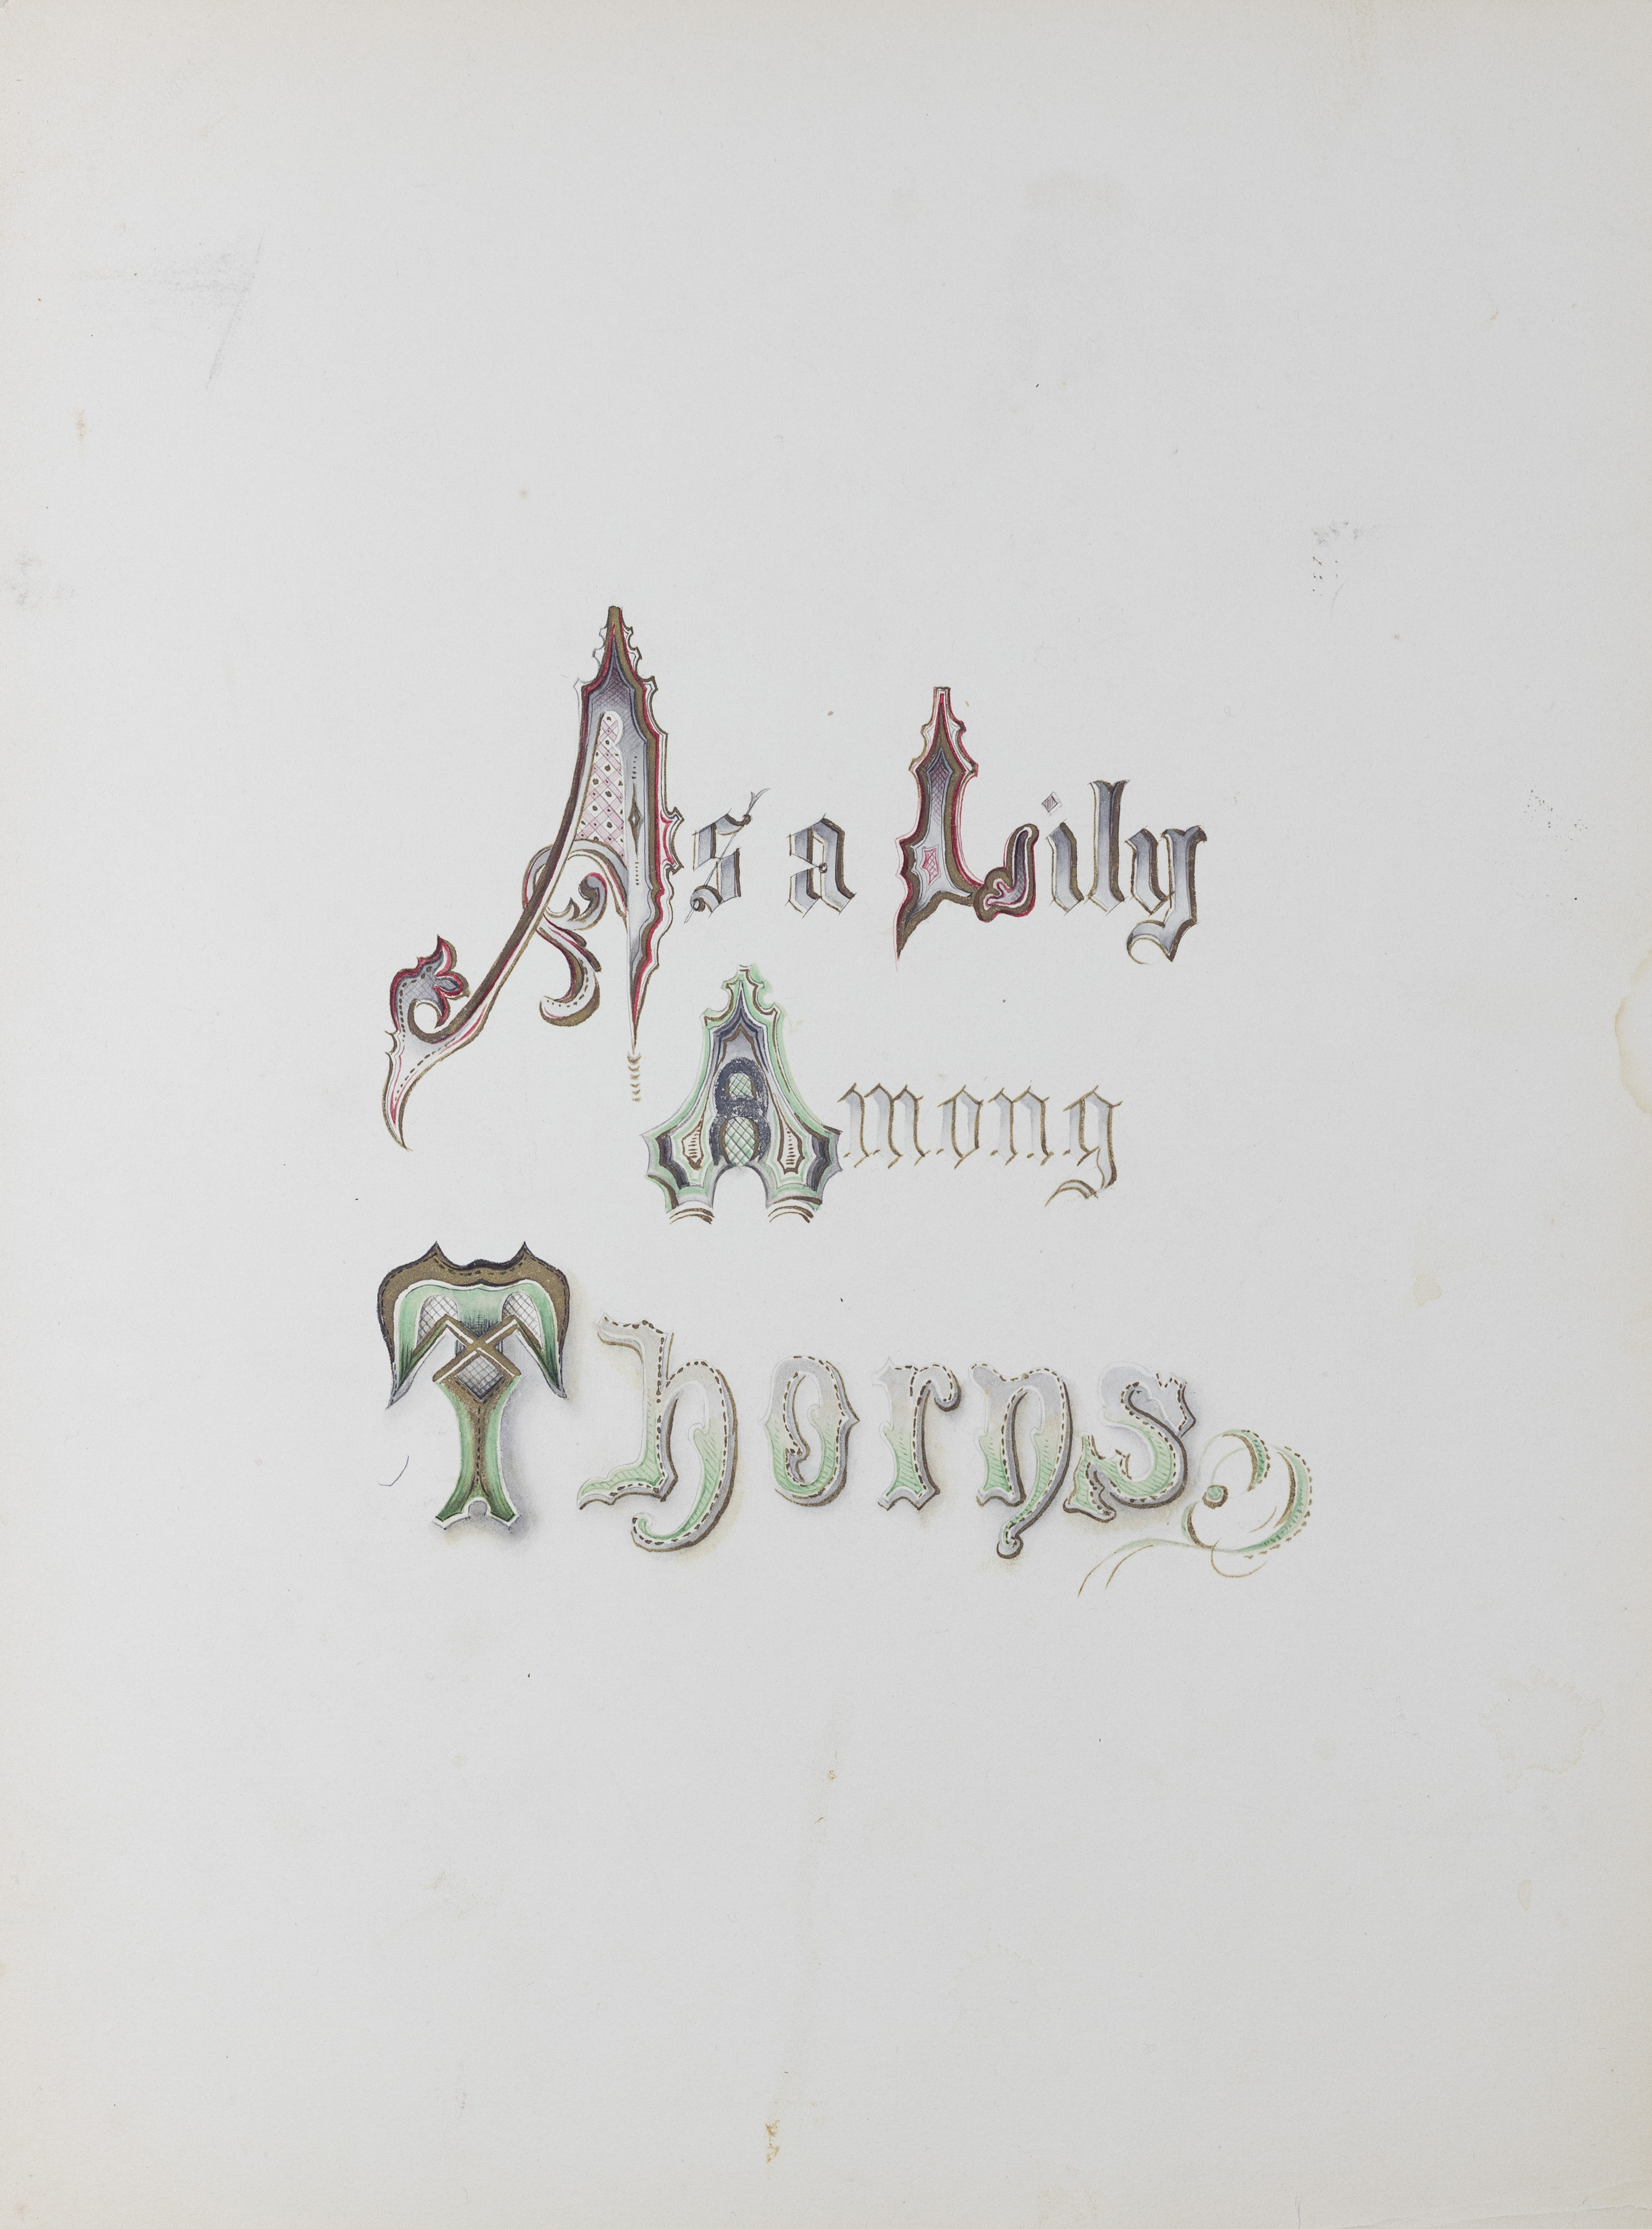 As a Lily
Among
Thorns